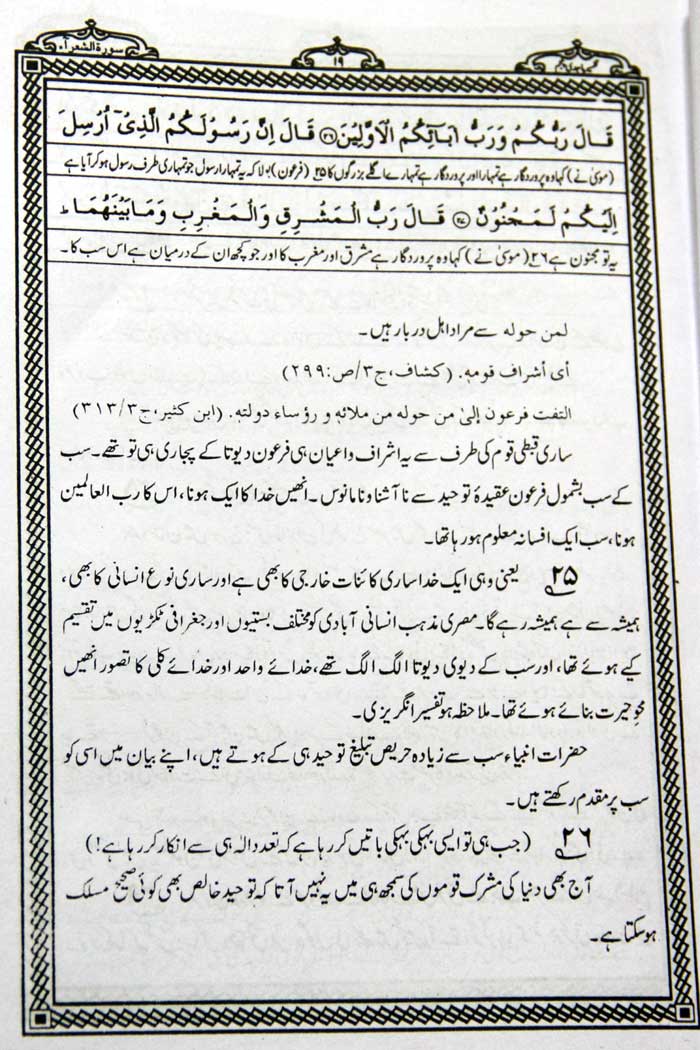 سورة الشعرآء
۱۹
قَالَ رَبُّكُمْ وَرَبُّ اٰبَآئِكُمُ الْاَوَّلِيْنَ ﴿۲۶﴾ قَالَ اِنَّ رَسُوْلَكُمُ الَّذِيْٓ اُرْسِلَ
(موسیٰ نے) کہا وہ پروردگار ہے تمہارا اور پروردگار ہے تمہارے اگلے بزرگوں کا ۲۵ (فرعون) بولا کہ یہ تمہارا رسول جو تمہاری طرف رسول ہو کر آیا ہے
اِلَيْكُمْ لَمَجْنُوْنٌ ﴿۲۷﴾ قَالَ رَبُّ الْمَشْرِقِ وَالْمَغْرِبِ وَمَا بَيْنَهُمَا ط
یہ تو مجنون ہے ۲۶ (موسیٰ نے) کہا وہ پروردگار ہے مشرق اور مغرب کا اور جو کچھ ان کے درمیان ہے اس سب کا۔
لمن حوله سے مراد اہل دربار ہیں۔
أى أشراف قومه. (كشاف، ج۳/ص:۲۹۹)
التفت فرعون إلىٰ من حوله من ملائه و رؤساء دولته. (ابن كثير، ج۳/۳۱۳)
ساری قبطی قوم کی طرف سے یہ اشراف و اعیان ہی فرعون دیوتا کے پجاری ہی تو تھے۔ سب
کے سب بشمول فرعون عقیدۂ توحید سے نا آشنا و نامانوس۔ انھیں خدا کا ایک ہونا، اس کا رب العالمین
ہونا، سب ایک افسانہ معلوم ہو رہا تھا۔
۲۵ یعنی وہی ایک خدا ساری کائنات خارجی کا بھی ہے اور ساری نوع انسانی کا بھی،
ہمیشہ سے ہے ہمیشہ رہے گا۔ مصری مذہب انسانی آبادی کو مختلف بستیوں اور جغرافی ٹکڑیوں میں تقسیم
کیے ہوئے تھا، اور سب کے دیوی دیوتا الگ الگ تھے، خدائے واحد اور خدائے کلی کا تصور انھیں
محو حیرت بنائے ہوئے تھا۔ ملاحظہ ہو تفسیر انگریزی۔
حضرات انبیاء سب سے زیادہ حریص تبلیغ توحید ہی کے ہوتے ہیں، اپنے بیان میں اسی کو
سب پر مقدم رکھتے ہیں۔
۲۶ (جب ہی تو ایسی بہکی بہکی باتیں کر رہا ہے کہ تعدد الٰہ ہی سے انکار کر رہا ہے!)
آج بھی دنیا کی مشرک قوموں کی سمجھ ہی میں یہ نہیں آتا کہ توحید خالص بھی کوئی صحیح مسلک
ہو سکتا ہے۔